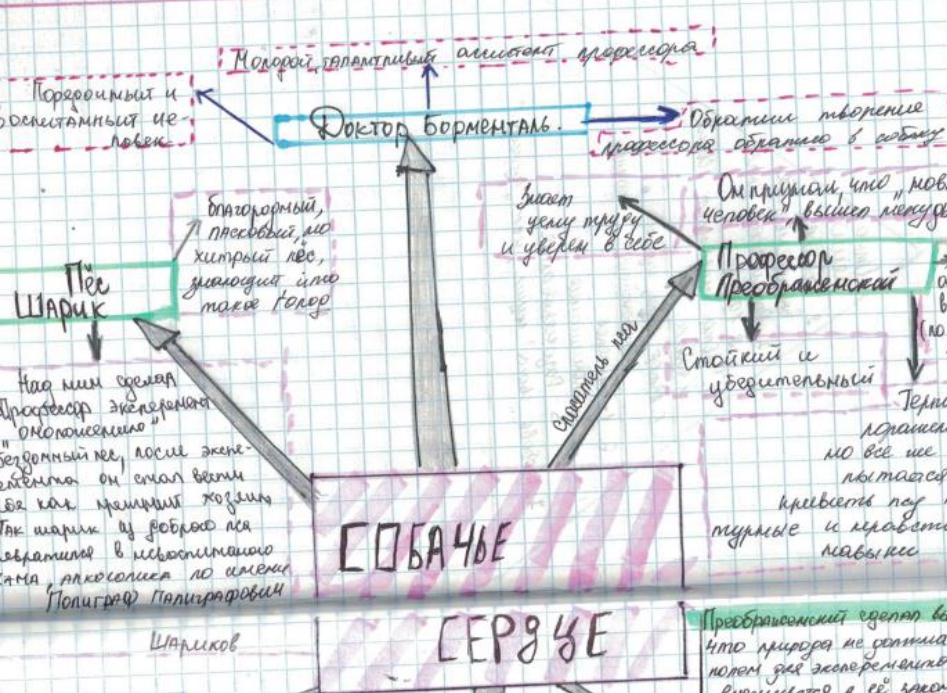 Молодой, талантливый ассистент профессора
Порядочный и
воспитанный че-
ловек
Доктор Борменталь.
Обратил творение
профессора обратно в собаку
благородный,
ласковый, но
хитрый пёс,
знающий что
такое голод
Знает
цену труду
и уверен в себе
Он признал, что „новый
человек", вышел
Пёс
Шарик
Профессор
Преображенский
Спасатель пса
Стойкий и
убедительный
Над ним сделал
Профессор эксперемент
"омоложению"
бездомный пес, после экспе-
он стал вести
как
Так шарик из доброго пса
в невоспитанного
ХАМА, алкоголика по имени
Полиграф Палиграфович
Шариков
но все же
пытается
и
навыки
СОБАЧЬЕ
СЕРДЦЕ
Преображенский сделал
что природа не должна
полем для эксперементов